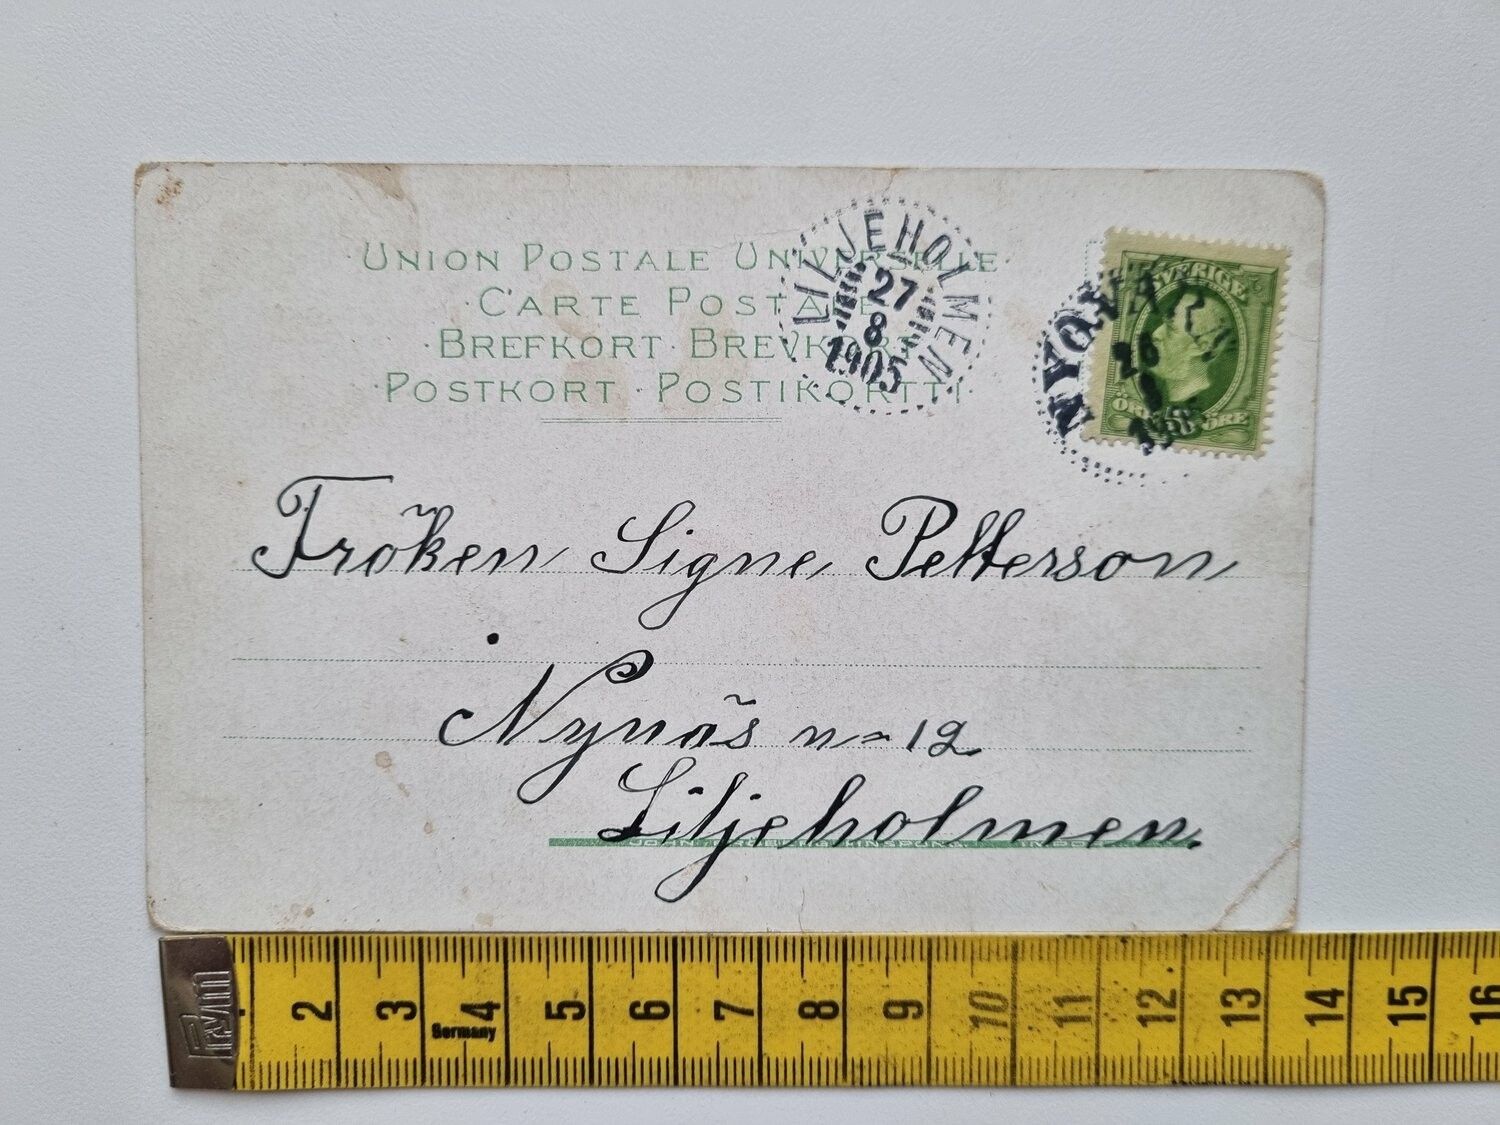 UNION POSTALE UNIVERSELLE
CARTE POSTALE
BREFKORT · BREVKORT
POSTKORT · POSTIKORTTI
LILJEHOLMEN
27
8
1905
SVERIGE
ÖRE 5 ÖRE
26
Fröken Signe Petterson
Nynäs n= 12
Liljeholmen.
Prym
2 3 4 5 6 7 8 9 10 11 12 13 14 15 16
Germany